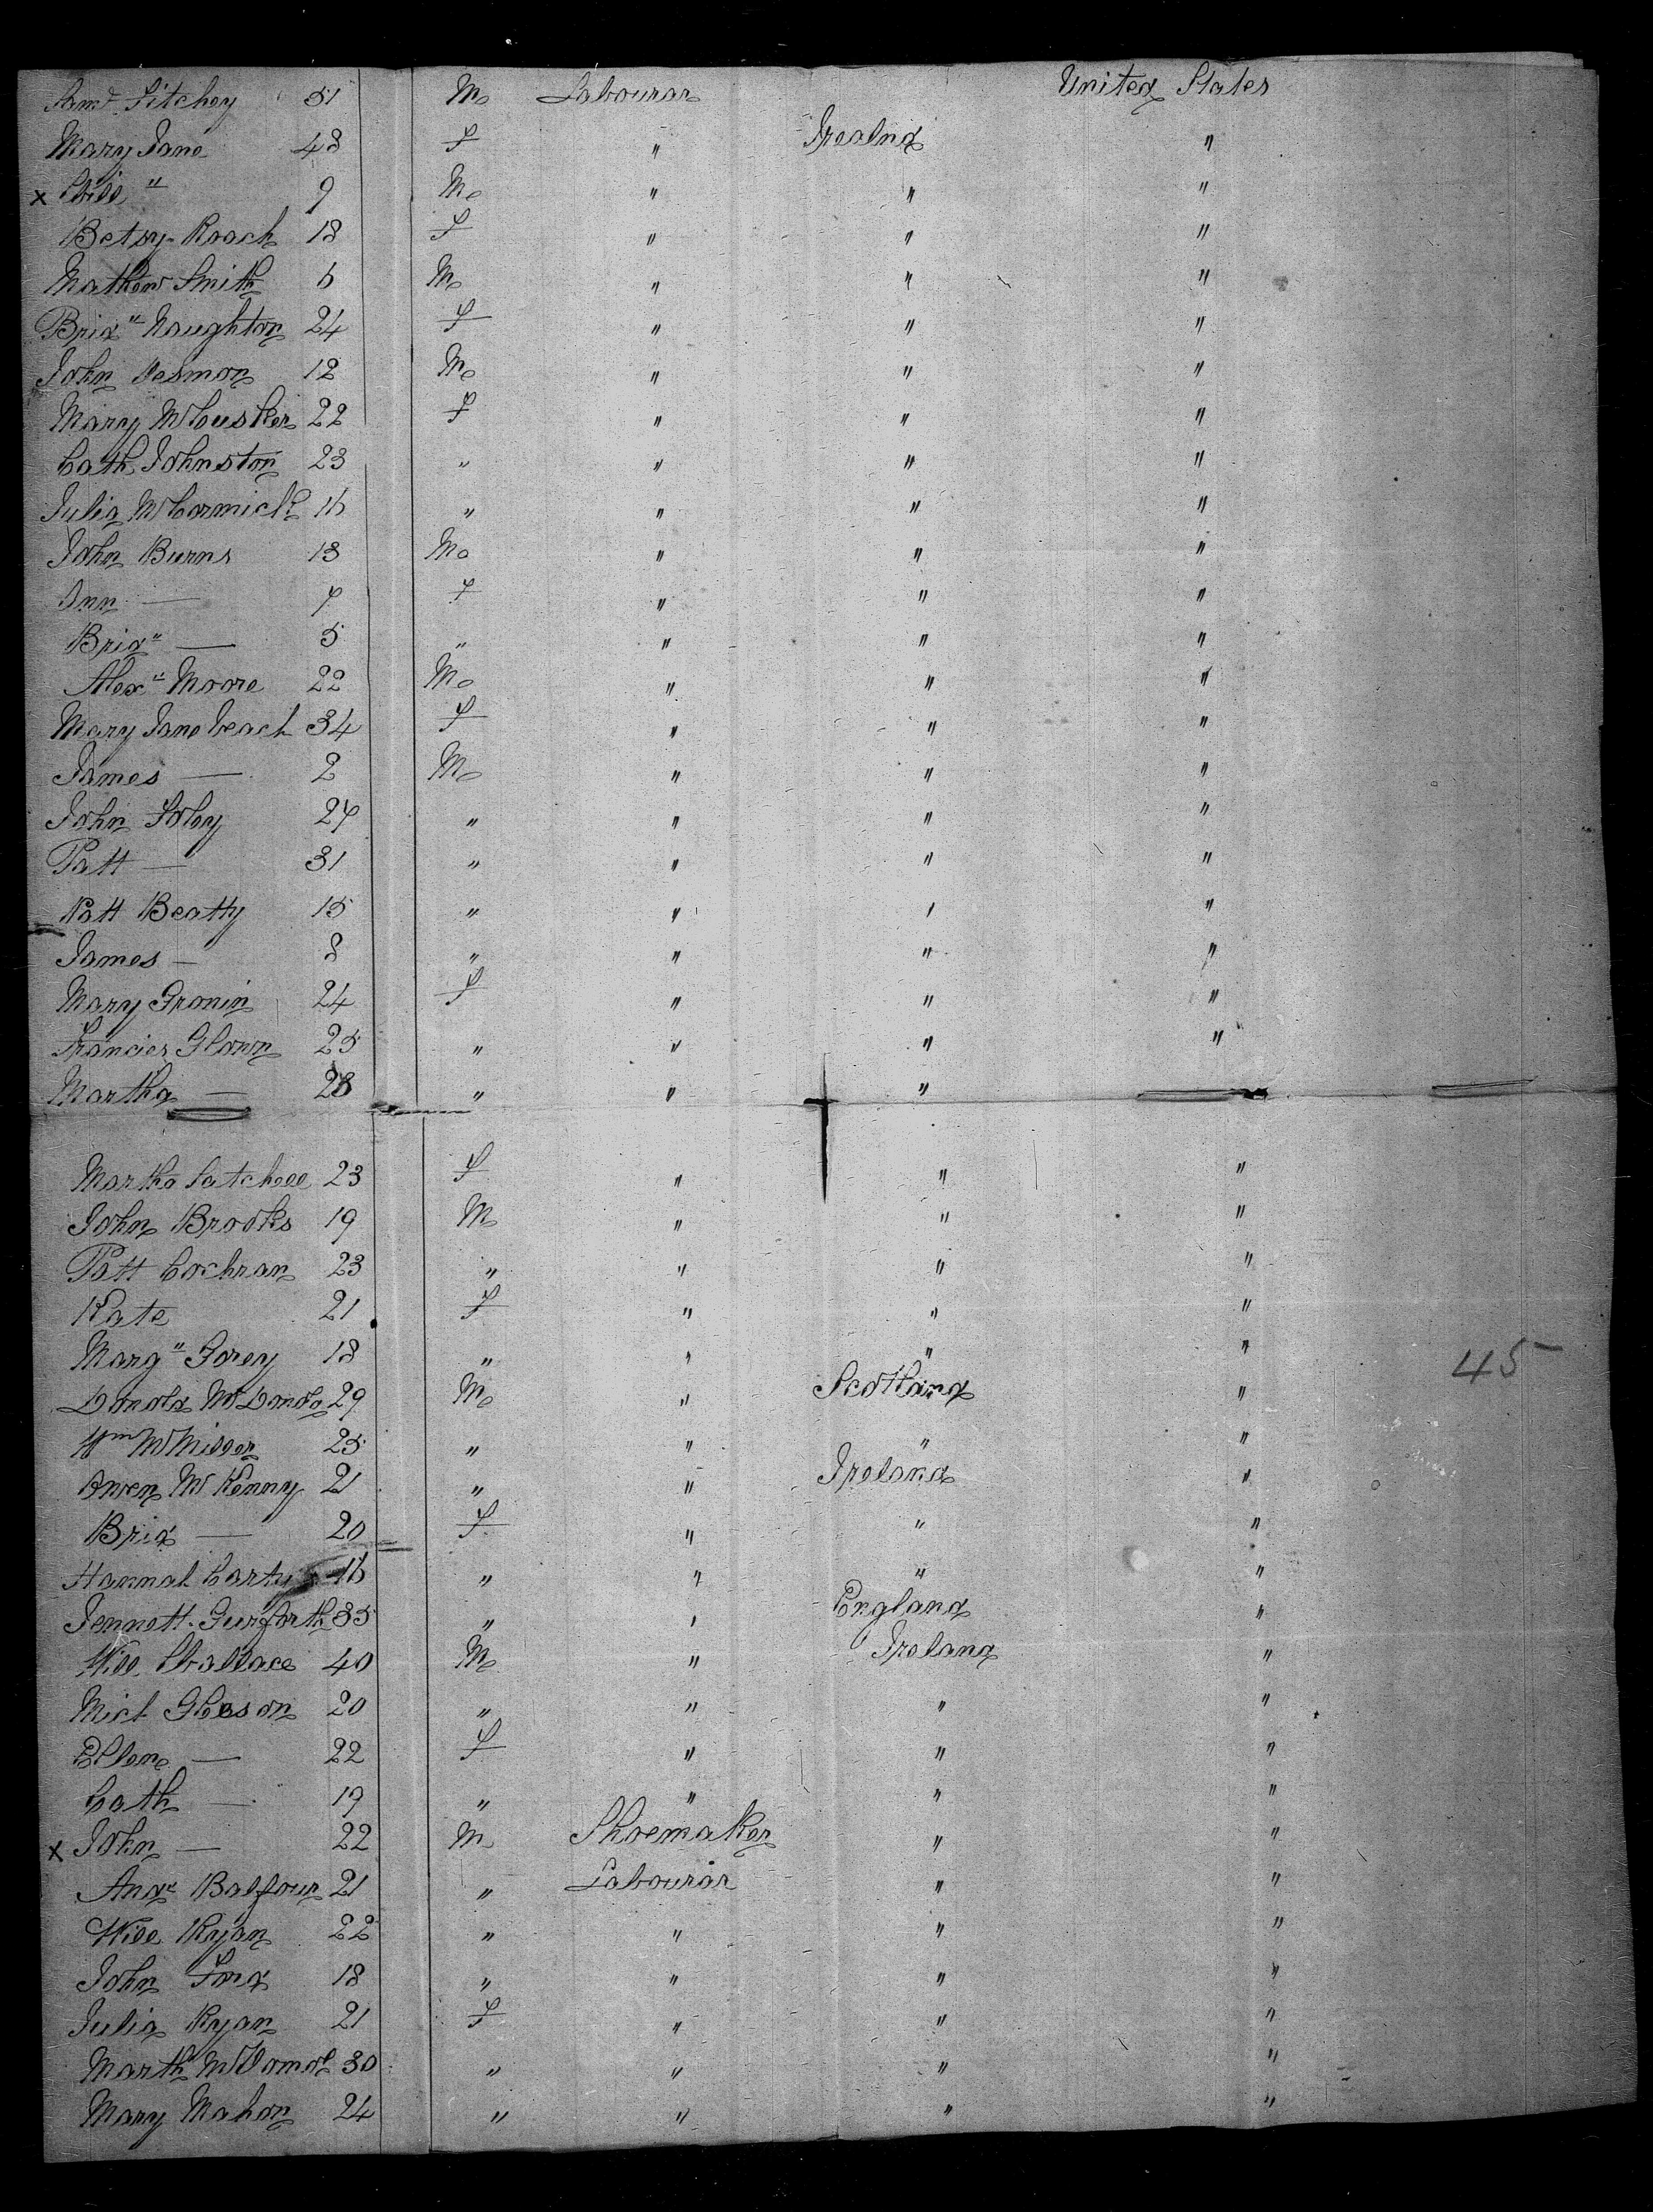 Saml Fitchey 51 M Labourar United States
Mary Jane 48 F " Irealnd "
x Will " 9 M " " "
Betsy Roach 18 F " " "
Mathew Smith 6 M " " "
Brid" Naughton 24 F " " "
John Desmon 12 M " " "
Mary McCusker 22 F " " "
Cath Johnston 23 " " " "
Julia McCormick 16 " " " "
John Burns 13 M " " "
Ann — 7 F " " "
Brid" — 5 " " " "
Alex" Moore 22 M " " "
Mary Jane Leach 34 F " " "
James — 2 M " " "
John Foley 27 " " " "
Patt — 31 " " " "
Patt Beatty 15 " " " "
James — 8 " " " "
Mary Cronin 24 F " " "
Francies Glown 25 " " " "
Martha — 28 " " "
Martha Satchell 23 F " " "
John Brooks 19 M " " "
Patt Cochran 23 " " " "
Kate 21 F " " "
Marg" Gorey 18 " " " "
45
Donold McDonold 29 M " Scotland "
Wm McMiller 25 " " " "
Owen McKenny 21 " " Ireland "
Brid — 20 F " " "
Hannah Carty 16 " " " "
Jennett Gurforth 35 " " England "
Will Wallace 40 M " Ireland "
Mich Gleeson 20 " " " "
Ellen — 22 F " " "
Cath — 19 " " " "
x John — 22 M Shoemaker " "
And" Balfour 21 " Labourar " "
Will Ryan 22 " " " "
John Ford 18 " " " "
Julia Ryan 21 F " " "
Marth 30 " " " "
Mary Mahon 24 " " " "